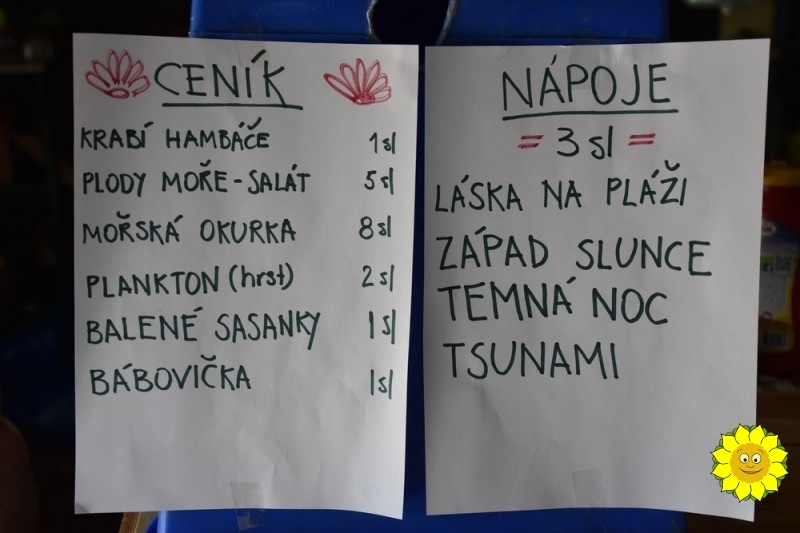 CENÍK
KRABÍ HAMBÁČE 1sl
PLODY MOŘE-SALÁT 5sl
MOŘSKÁ OKURKA 8sl
PLANKTON (hrst) 2sl
BALENÉ SASANKY 1sl
BÁBOVIČKA 1sl
NÁPOJE
= 3 sl =
LÁSKA NA PLÁŽI
ZÁPAD SLUNCE
TEMNÁ NOC
TSUNAMI